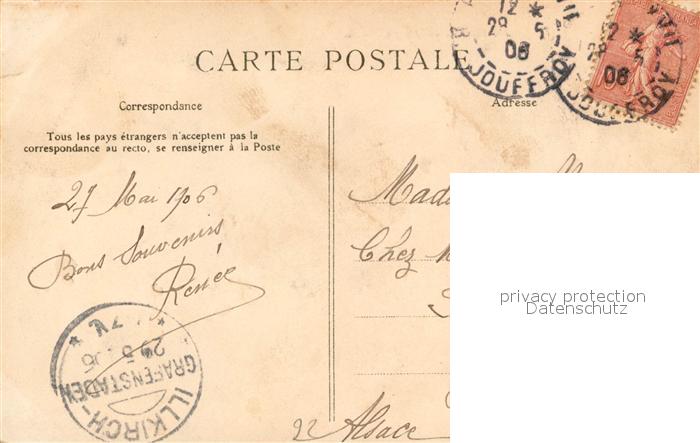 CARTE POSTALE
Correspondance
Tous les pays étrangers n'acceptent pas la
correspondance au recto, se renseigner à la Poste
27 Mai 1906
Bons Souvenirs
Renée
ILLKIRCH-
GRAFENSTADEN
29 5 06
12 *
28 5
06
JOUFFROY
12 *
28 5
06
JOUFFROY
Adresse
Mada
Chez M
Alsace
22
privacy protection
Datenschutz